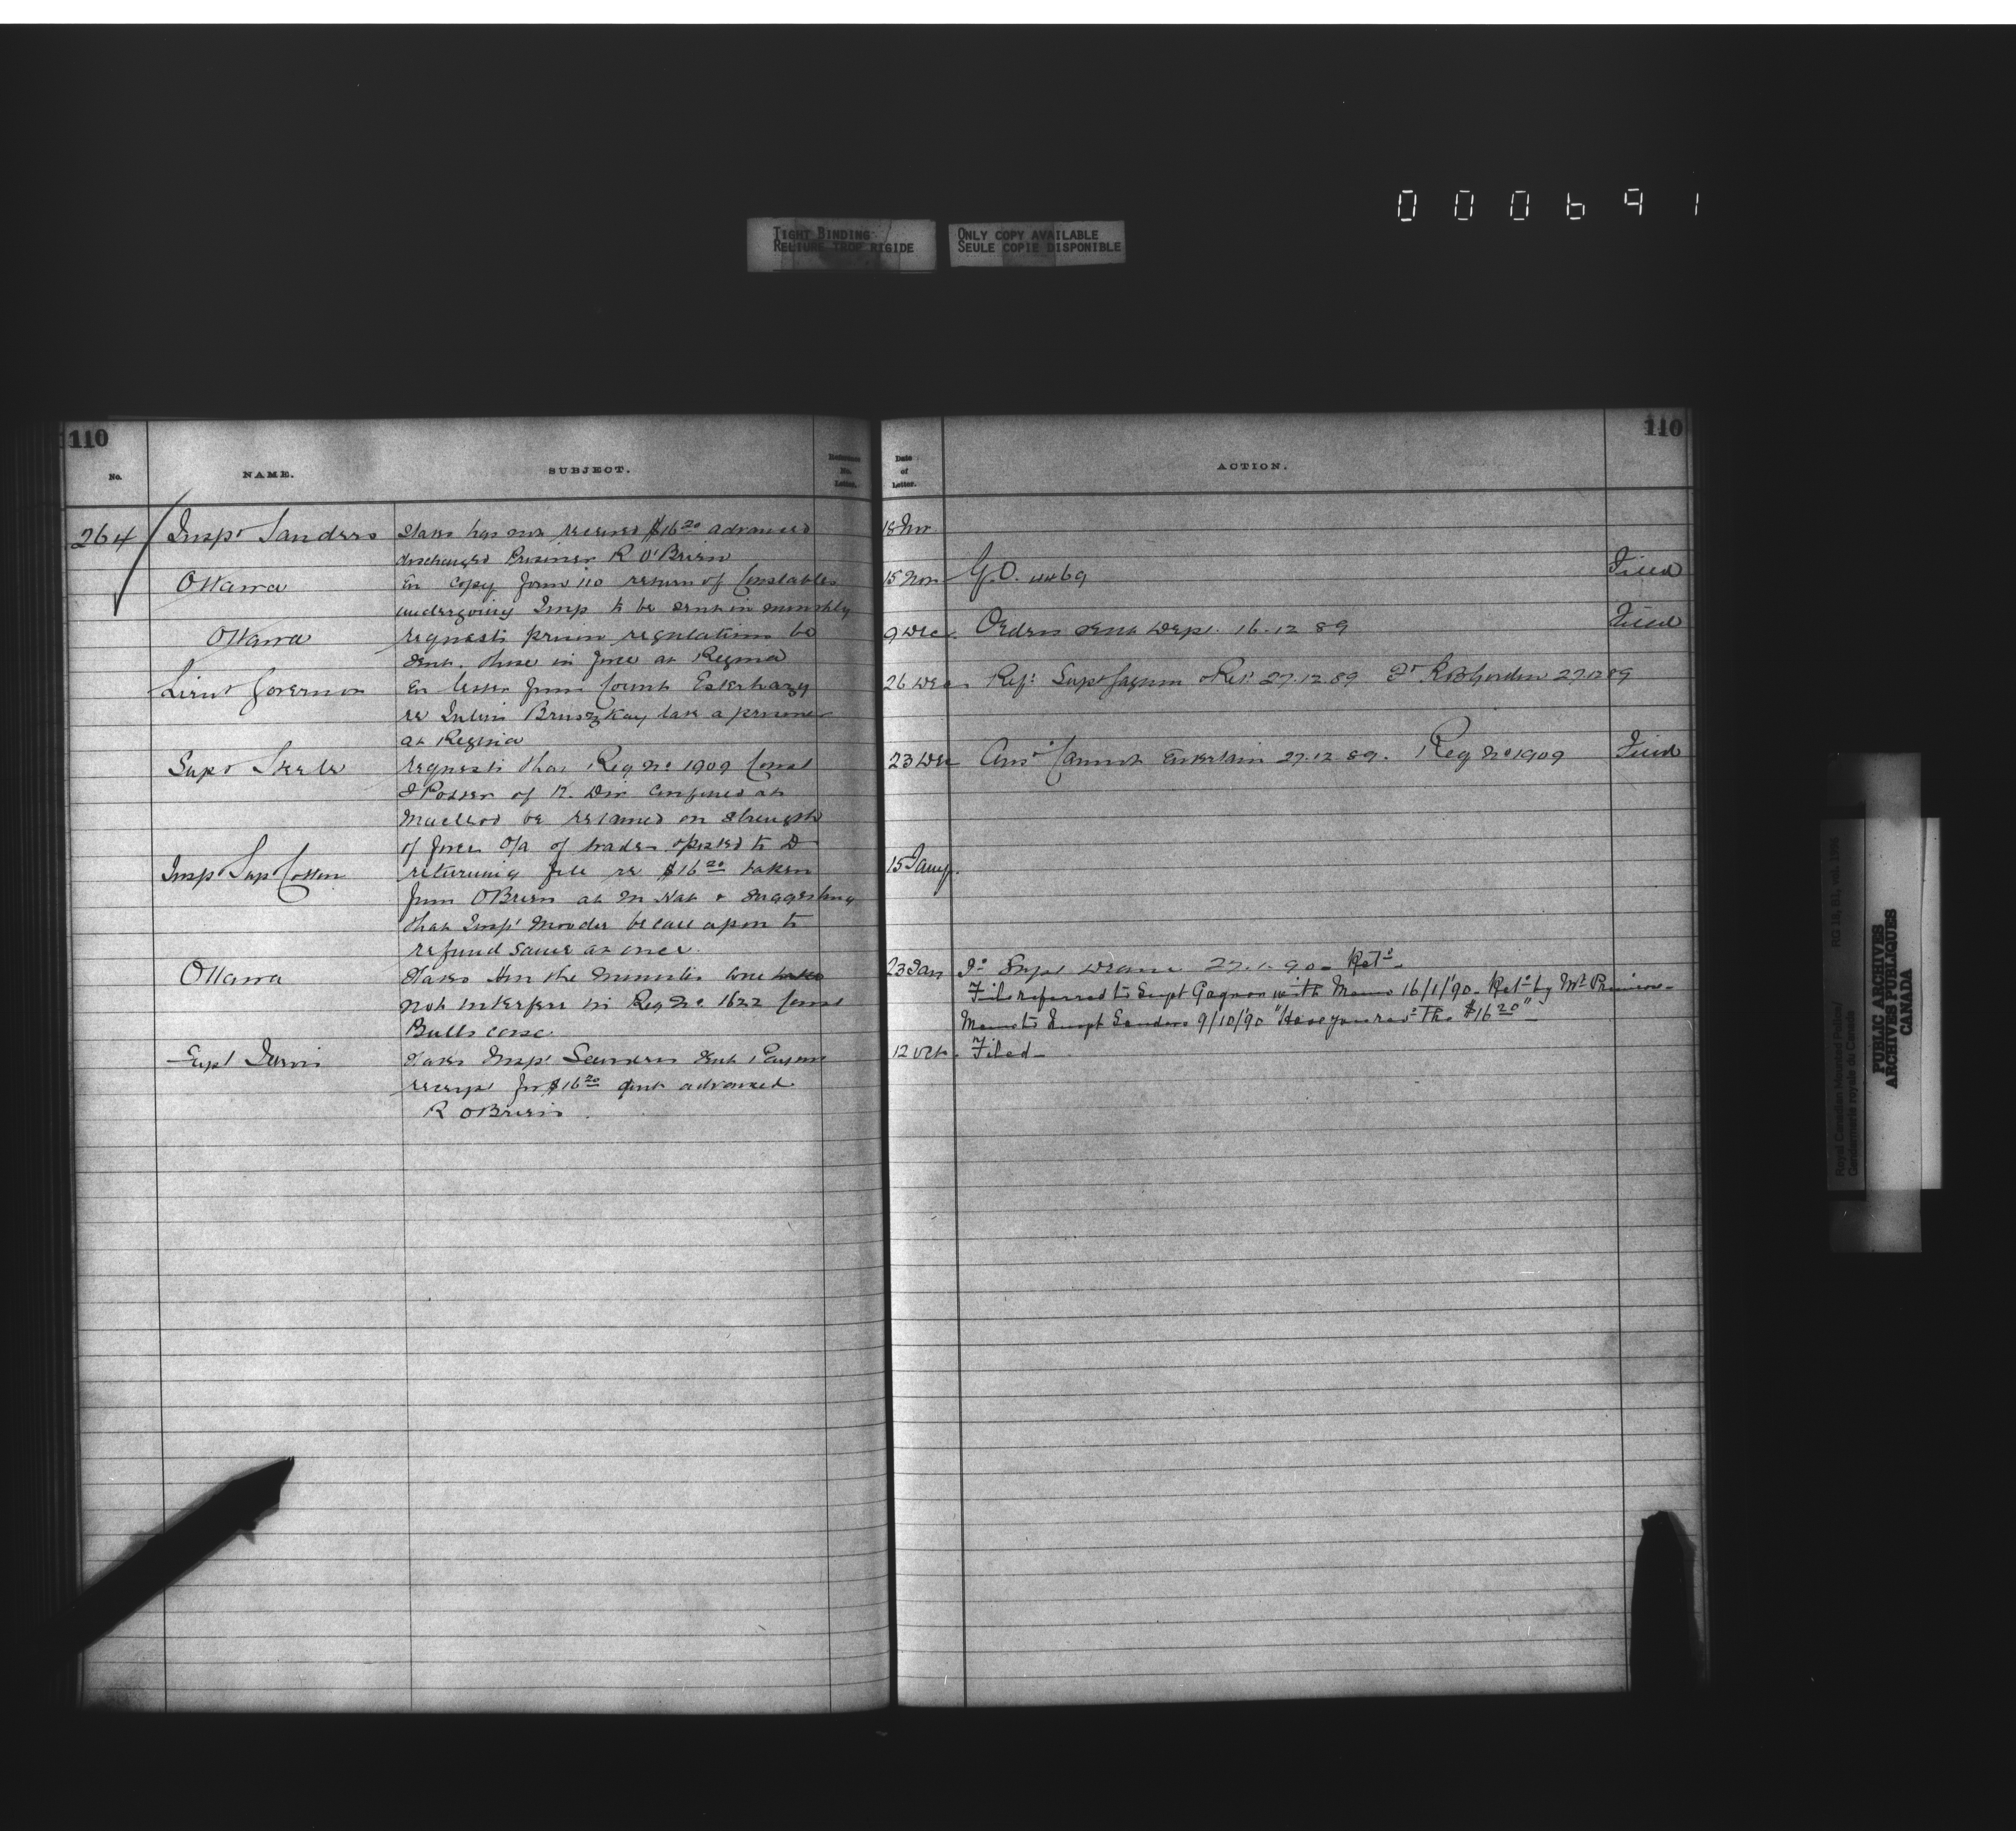 000691
TIGHT BINDING
RELIURE TROP RIGIDE
ONLY COPY AVAILABLE
SEULE COPIE DISPONIBLE
110
110
No.
NAME.
SUBJECT.
Reference No. Letter.
Date of Letter.
ACTION.
264 Inspr Sanders States has not received $16 20 advanced 18 Nov
discharged Prisoner R O'Brien
Ottawa En copy form 110 return of Constables 15 Nov G.O. 4469 Filed
undergoing Imp to be sent in monthly
Ottawa requests prison regulations be 9 Dec Orders sent Dept. 16.12 89 Filed
sent. those in force at Regina
Lieut Governor En letter from Count Esterhazy 26 Dec Refd Supt Gagnon Retd 27.12.89 To R B Gordon 27.12.89
re Julius Bruszkay late a prisoner
at Regina
Supt Steele requests that Reg No 1909 Const 23 Dec Ansd Cannot Entertain 27.12.89. Reg No 1909 Filed
of K. Div confined at
Macleod be retained on strength
of force o/a of trade to D
Supt Cotton returning file re $16 20 taken 15 Jany.
from O'Brien at M Hat & suggesting
that Inspr Moodie be call upon to
refund same at once.
Ottawa States Hon the Minister 23 Jan To Supt Deane 27.1.90 Retd
File referred to Supt Gagnon with Memo 16/1/90. Retd by
not interfere in Reg No. 1622 Const
Memo to Inspt Sanders 9/10/90 "Have you recd The $16 20"
Bulls case.
Supt Jarvis States Inspr Sanders sent
12 Oct. Filed
receipt for $16 20 advanced
R O'Brien.
Royal Canadian Mounted Police/
Gendarmerie royale du Canada
RG 18, B1, vol.
PUBLIC ARCHIVES
ARCHIVES PUBLIQUES
CANADA